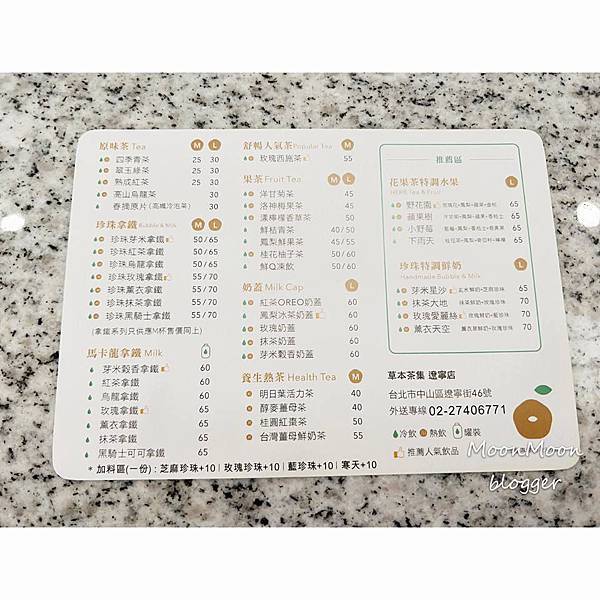 原味茶 Tea M L
四季青茶 25 30
翠玉綠茶 25 30
熟成紅茶 25 30
高山烏龍茶 30
春摘原片(高纖冷泡茶) 30
珍珠拿鐵 Bubble & Milk M L
珍珠芽米拿鐵 50/65
珍珠紅茶拿鐵 50/65
珍珠烏龍拿鐵 50/65
珍珠玫瑰拿鐵 55/70
珍珠薰衣拿鐵 55/70
珍珠抹茶拿鐵 55/70
珍珠黑騎士拿鐵 55/70
(拿鐵系列只供應M杯售價同上)
馬卡龍拿鐵 Milk
芽米穀香拿鐵 60
紅茶拿鐵 60
烏龍拿鐵 60
玫瑰拿鐵 65
薰衣拿鐵 65
抹茶拿鐵 65
黑騎士可可拿鐵 65
舒暢人氣茶 Popular Tea M
玫瑰西施茶 55
果茶 Fruit Tea M L
洋甘菊茶 45
洛神梅果茶 45
漾檸檀香草茶 50
鮮桔青茶 40/50
鳳梨鮮果茶 45/55
桂花柚子茶 50/60
鮮Q凍飲 50/60
奶蓋 Milk Cap L
紅茶OREO奶蓋 60
鳳梨冰茶奶蓋 60
玫瑰奶蓋 60
抹茶奶蓋 60
芽米穀香奶蓋 60
養生熱茶 Health Tea M
明日葉活力茶 40
醇麥薑母茶 40
桂圓紅棗茶 50
台灣薑母鮮奶茶 55
推薦區
花果茶特調水果 L
HERB Tea & Fruit
野花園 65
蘋果樹 65
小野莓 65
下雨天 65
珍珠特調鮮奶 L
Handmade Bubble & Milk
芽米星沙 玄米鮮奶+芝麻珍珠 65
抹茶大地 抹茶鮮奶+玫瑰珍珠 70
玫瑰愛麗絲 玫瑰鮮奶+藍珍珠 70
薰衣天空 薰衣草鮮奶+玫瑰珍珠 70
草本茶集 遼寧店
台北市中山區遼寧街46號
外送專線 02-27406771
冷飲 熱飲 罐裝
推薦人氣飲品
* 加料區(一份) : 芝麻珍珠+10 | 玫瑰珍珠+10 | 藍珍珠+10 | 寒天+10
MoonMoon
blogger